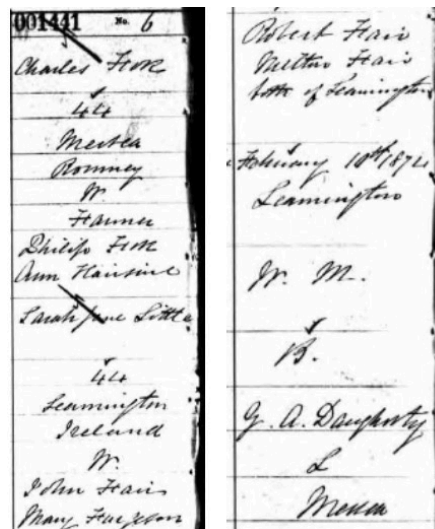 001441 No. 6
Charles Fox
44
Mersea
Romney
W.
Farmer
Philip Fox
Ann Hairsine
Sarah Jane Little
44
Leamington
Ireland
W.
John Hair
Mary
Robert Hair
Hair
both of Leamington
February 10th 1874
Leamington
W. M.
B.
G. A. Daugherty
L
Mersea